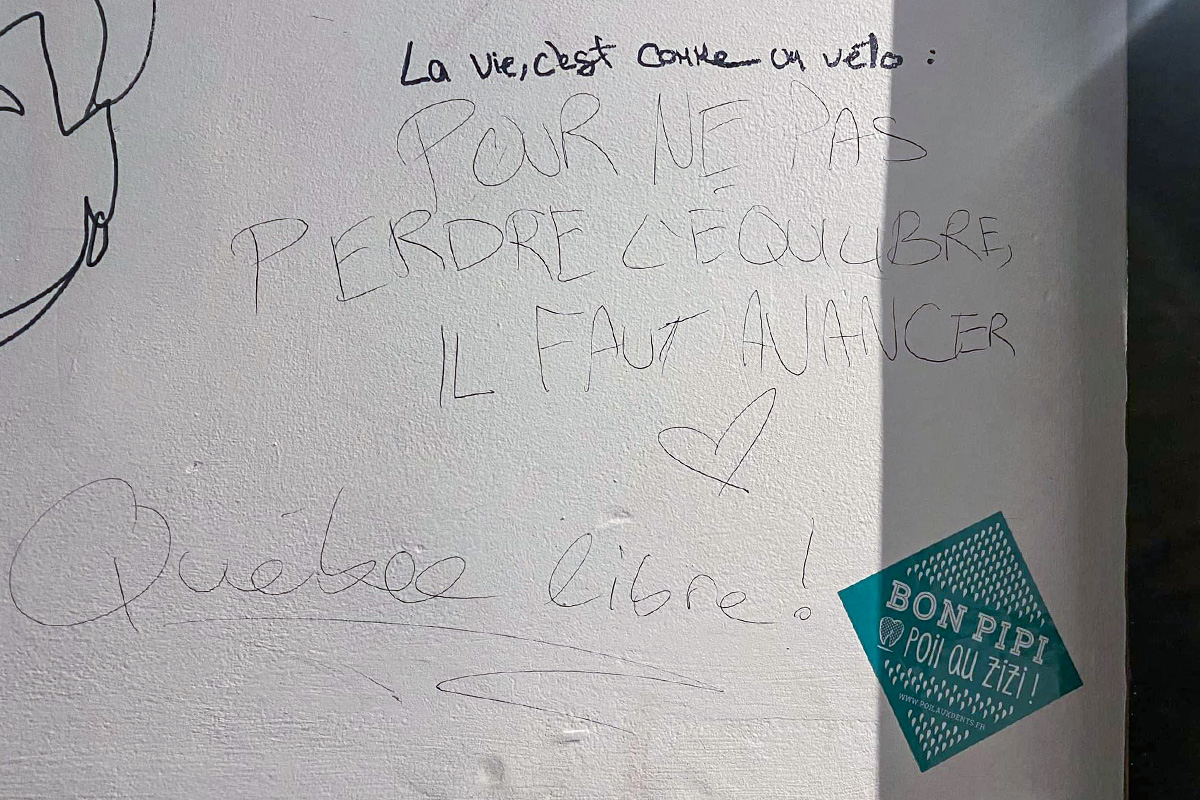 La vie, c'est comme un vélo :
POUR NE PAS
PERDRE L'ÉQUILIBRE,
IL FAUT AVANCER
Québec libre !
BON PIPI
POIL AU ZIZI !
WWW.POILAUXDENTS.FR